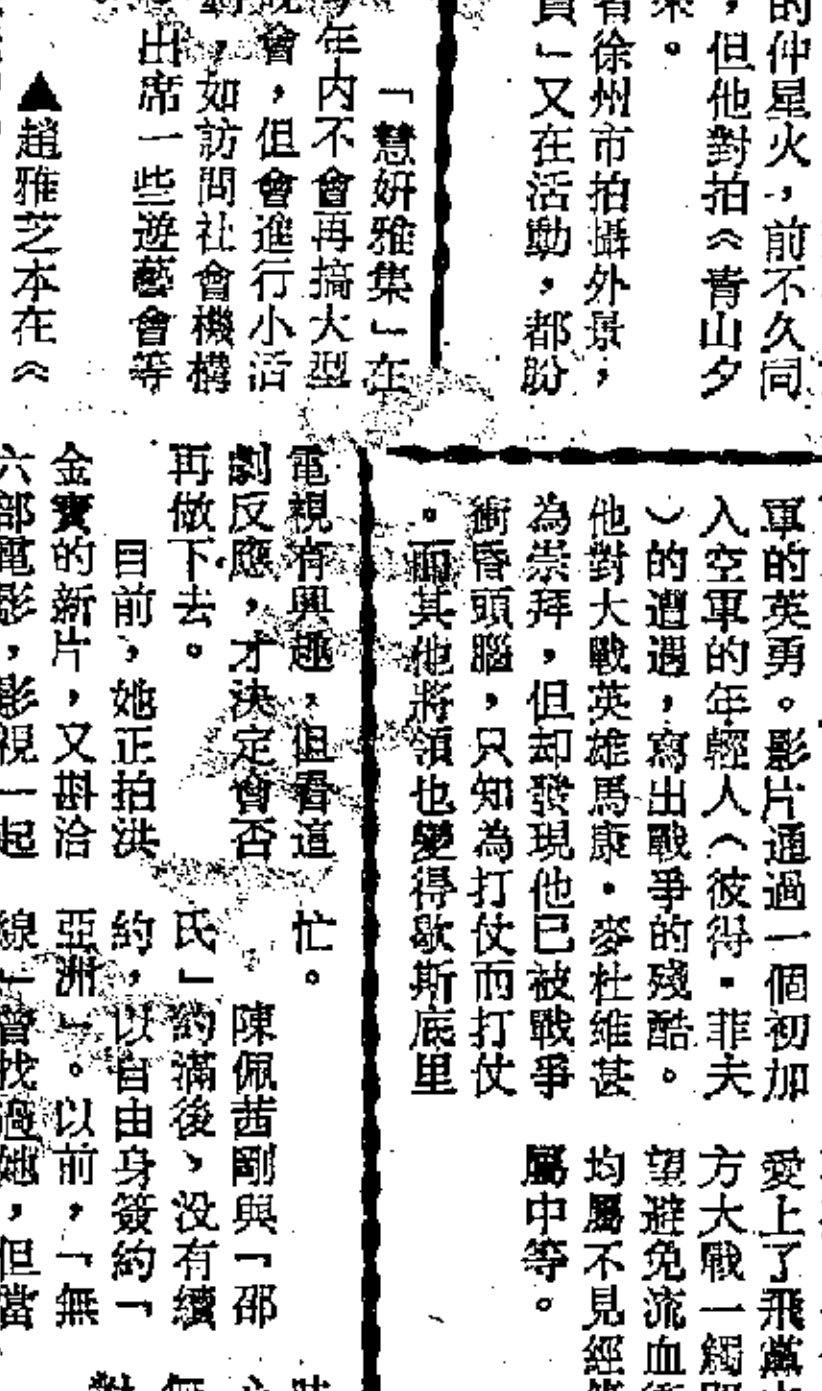 的仲星火，前不久同
，但他對拍《青山夕
來。
省徐州市拍攝外景，
員」又在活動，都盼
「慧妍雅集」在
年內不會再搞大型
會，但會進行小活
，如訪問社會機構
出席一些遊藝會等
▲趙雅芝本在《
軍的英勇。影片通過一個初加
入空軍的年輕人（彼得·菲夫
）的遭遇，寫出戰爭的殘酷。
他對大戰英雄馬康·麥杜維甚
為崇拜，但却發現他已被戰爭
衝昏頭腦，只知為打仗而打仗
。而其他將領也變得歇斯底里
愛上了飛黨
方大戰一觸即
望避免流血衝
均屬不見經
屬中等。
電視有興趣，但看這
劇反應，才決定會否
再做下去。
目前，她正拍洪
金寶的新片，又斟洽
六部電影，影視一起
忙。
陳佩茜剛與「邵
氏」約滿後，没有續
約，以自由身簽約「
亞洲」。以前，「無
線」曾找過她，但當